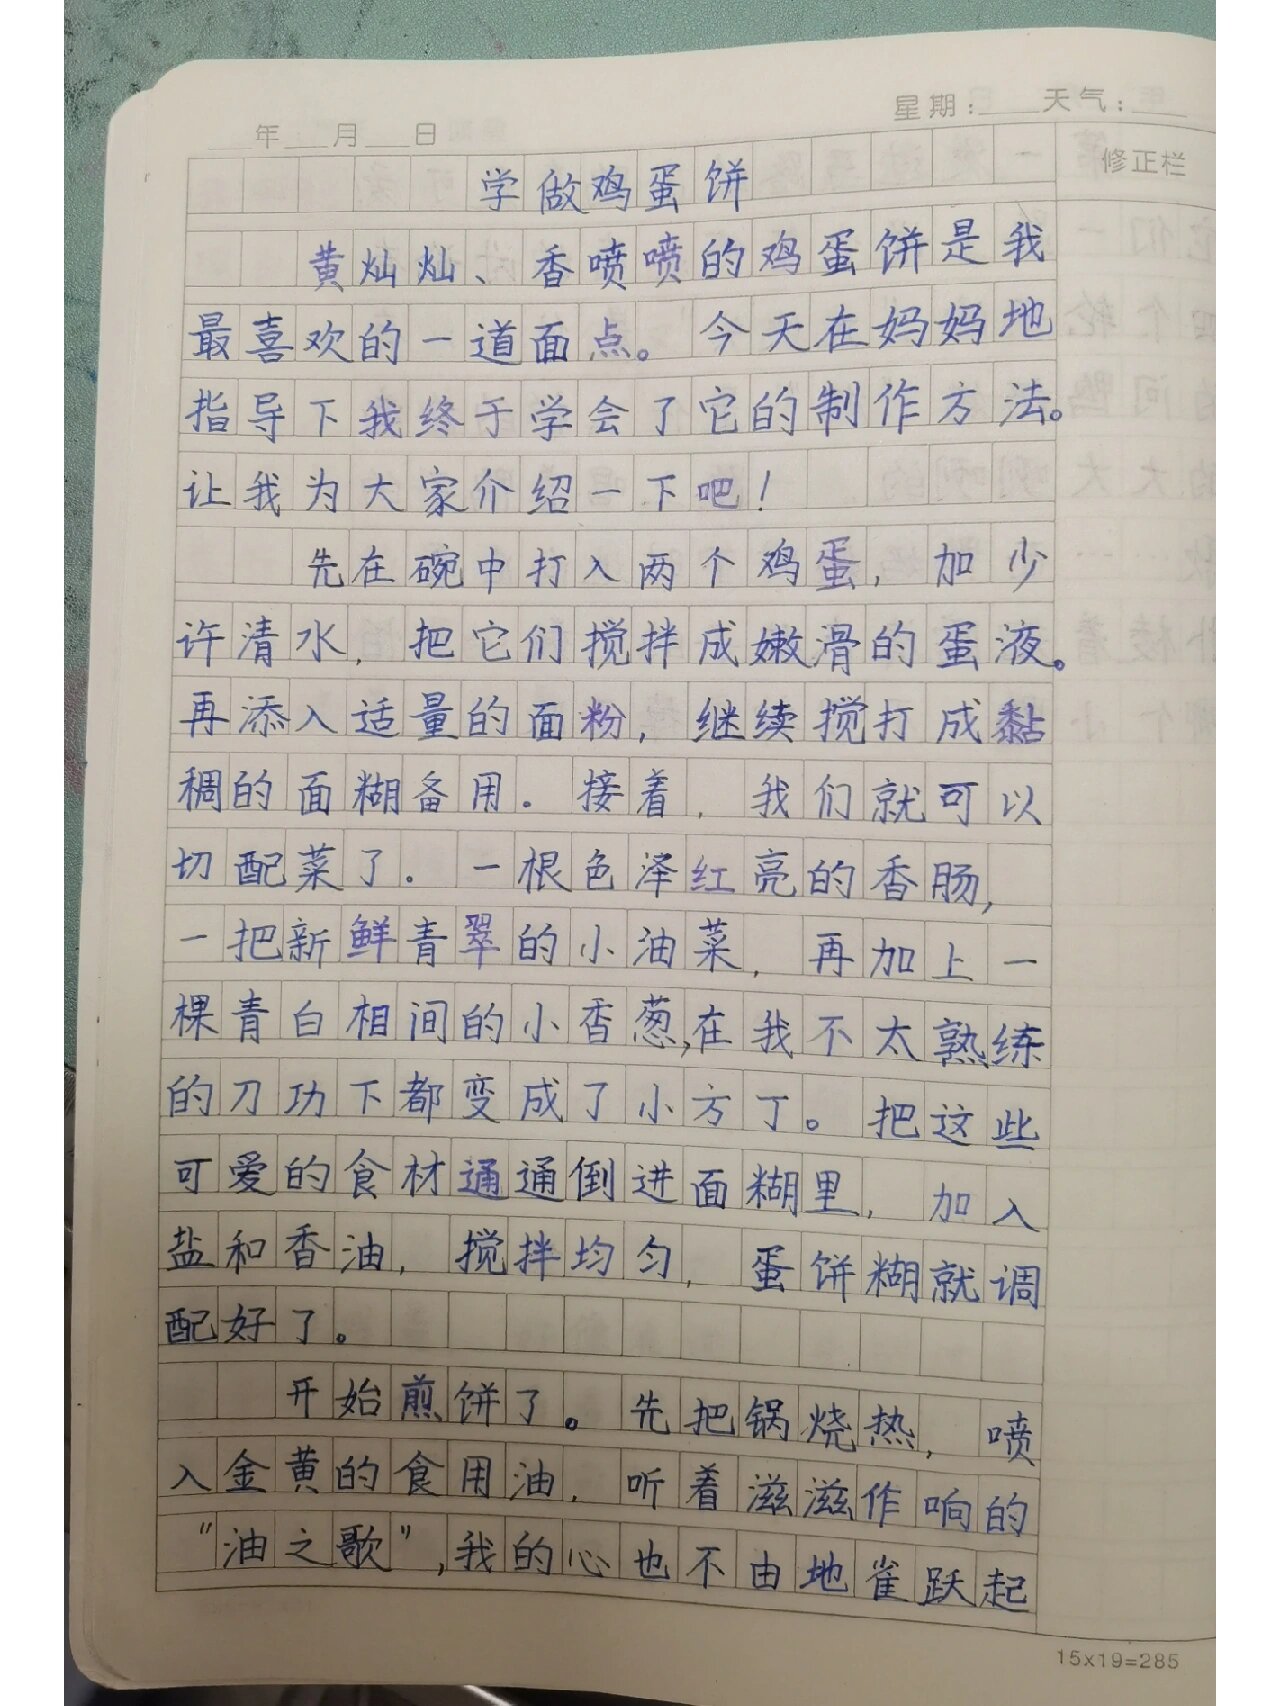 星期：____天气：____
____年___月___日
修正栏
学做鸡蛋饼
黄灿灿、香喷喷的鸡蛋饼是我
最喜欢的一道面点。今天在妈妈地
指导下我终于学会了它的制作方法。
让我为大家介绍一下吧！
先在碗中打入两个鸡蛋，加少
许清水，把它们搅拌成嫩滑的蛋液。
再添入适量的面粉，继续搅打成黏
稠的面糊备用．接着，我们就可以
切配菜了．一根色泽红亮的香肠，
一把新鲜青翠的小油菜，再加上一
棵青白相间的小香葱，在我不太熟练
的刀功下都变成了小方丁。把这些
可爱的食材通通倒进面糊里，加入
盐和香油，搅拌均匀，蛋饼糊就调
配好了。
开始煎饼了。先把锅烧热，喷
入金黄的食用油，听着滋滋作响的
“油之歌”，我的心也不由地雀跃起
15x19=285